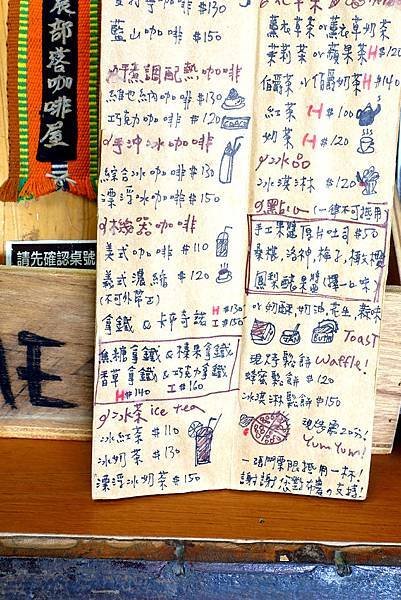 部落咖啡屋
請先確認桌號
#130
藍山咖啡 #150
調配熱咖啡
維也納咖啡 #130
巧克力咖啡 #120
手沖冰咖啡
綜合冰咖啡 #130
漂浮冰咖啡 #150
機器咖啡
美式咖啡 #110
義式濃縮 #120
(不可外帶)
拿鐵 & 卡布奇諾 H #130 I #150
焦糖拿鐵 & 榛果拿鐵
香草拿鐵 & 巧克力拿鐵
H #140 I #160
冰茶 ice tea
冰紅茶 #110
冰奶茶 #130
漂浮冰奶茶 #150
薰衣草茶 or 薰衣草奶茶
茉莉茶 or 蘋果茶 H #120
伯爵茶 or 伯爵奶茶 H #140
紅茶 H #100
奶茶 H #120
冰品
冰淇淋 #120
點心 (一律不可抵用)
手工果醬厚片吐司 #50
桑椹、洛神、梅子、
鳳梨釀果醬 (擇一口味)
or 奶酥、奶油、花生、蒜味
Toast
現烤鬆餅 Waffle!
蜂蜜鬆餅 #120
冰淇淋鬆餅 #150
現烤需20分!
Yum Yum!
一張門票限抵用一杯!
謝謝您對部落の支持!